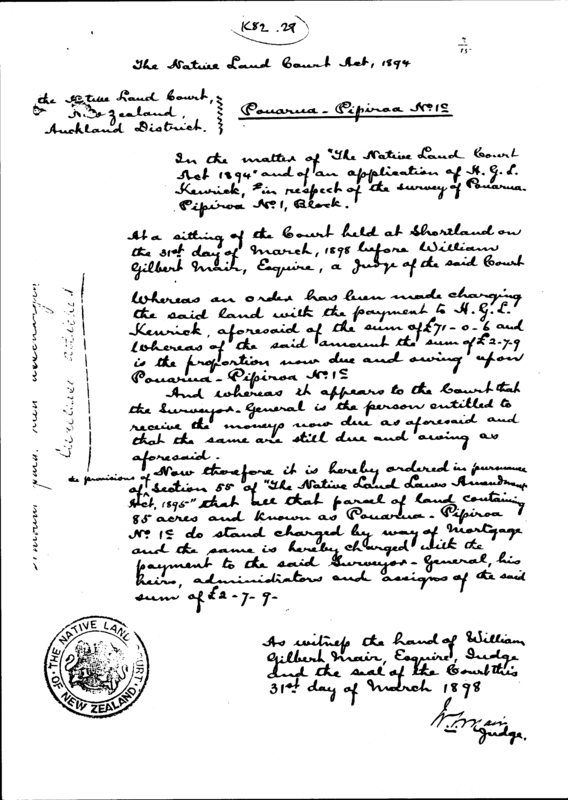 K82.29
7/15
The Native Land Court Act, 1894
the Native Land Court,
New Zealand,
Auckland District.
Pouarua - Pipiroa No 1c
In the matter of "The Native Land Court
Act 1894" and of an application of H. G. L.
Kenrick, in respect of the survey of Pouarua-
Pipiroa No 1, Block.
At a sitting of the Court held at Shortland on
the 31st day of March, 1898 before William
Gilbert Mair, Esquire, a Judge of the said Court
Whereas an order has been made charging
the said land with the payment to H. G. L.
Kenrick, aforesaid of the sum of £71-0-6 and
Whereas of the said amount the sum of £2-7-9
is the proportion now due and owing upon
Pouarua - Pipiroa No 1c
And whereas it appears to the Court that
the Surveyor-General is the person entitled to
receive the moneys now due as aforesaid and
that the same are still due and owing as
aforesaid.
Now therefore it is hereby ordered in pursuance
the provisions of
of Section 55 of "The Native Land Laws Amendment
Act, 1895" that all that parcel of land containing
85 acres and known as Pouarua - Pipiroa
No 1c do stand charged by way of Mortgage
and the same is hereby charged with the
payment to the said Surveyor-General, his
heirs, administrators and assigns of the said
sum of £2-7-9-
As witness the hand of William
Gilbert Mair, Esquire, Judge
and the seal of the Court this
31st day of March 1898
W. G. Mair
Judge.
THE NATIVE LAND COURT OF NEW ZEALAND